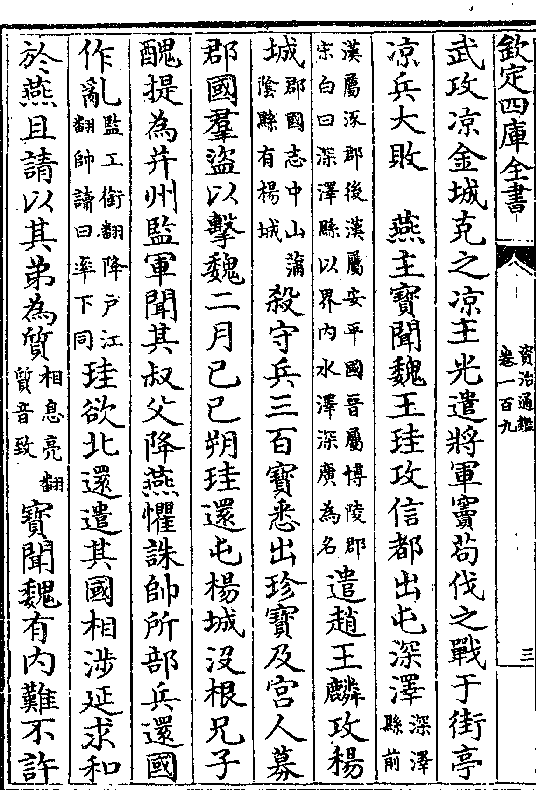 欽定四庫全書
資治通鑑
卷一百九
三
武攻凉金城克之凉主光遣將軍竇苟伐之戰于街亭
凉兵大敗　燕主寳聞魏王珪攻信都出屯深澤深澤縣前
漢屬涿郡後漢屬安平國晉屬博陵郡宋白曰深澤縣以界内水澤深廣為名遣趙王麟攻楊
城郡國志中山蒲陰縣有楊城殺守兵三百寳悉出珍寳及宫人募
郡國羣盜以擊魏二月己巳朔珪還屯楊城没根兄子
醜提為并州監軍聞其叔父降燕懼誅帥所部兵還國
作亂監工銜翻降户江翻帥讀曰率下同珪欲北還遣其國相涉延求和
於燕且請以其弟為質相息亮翻質音致寳聞魏有内難不許